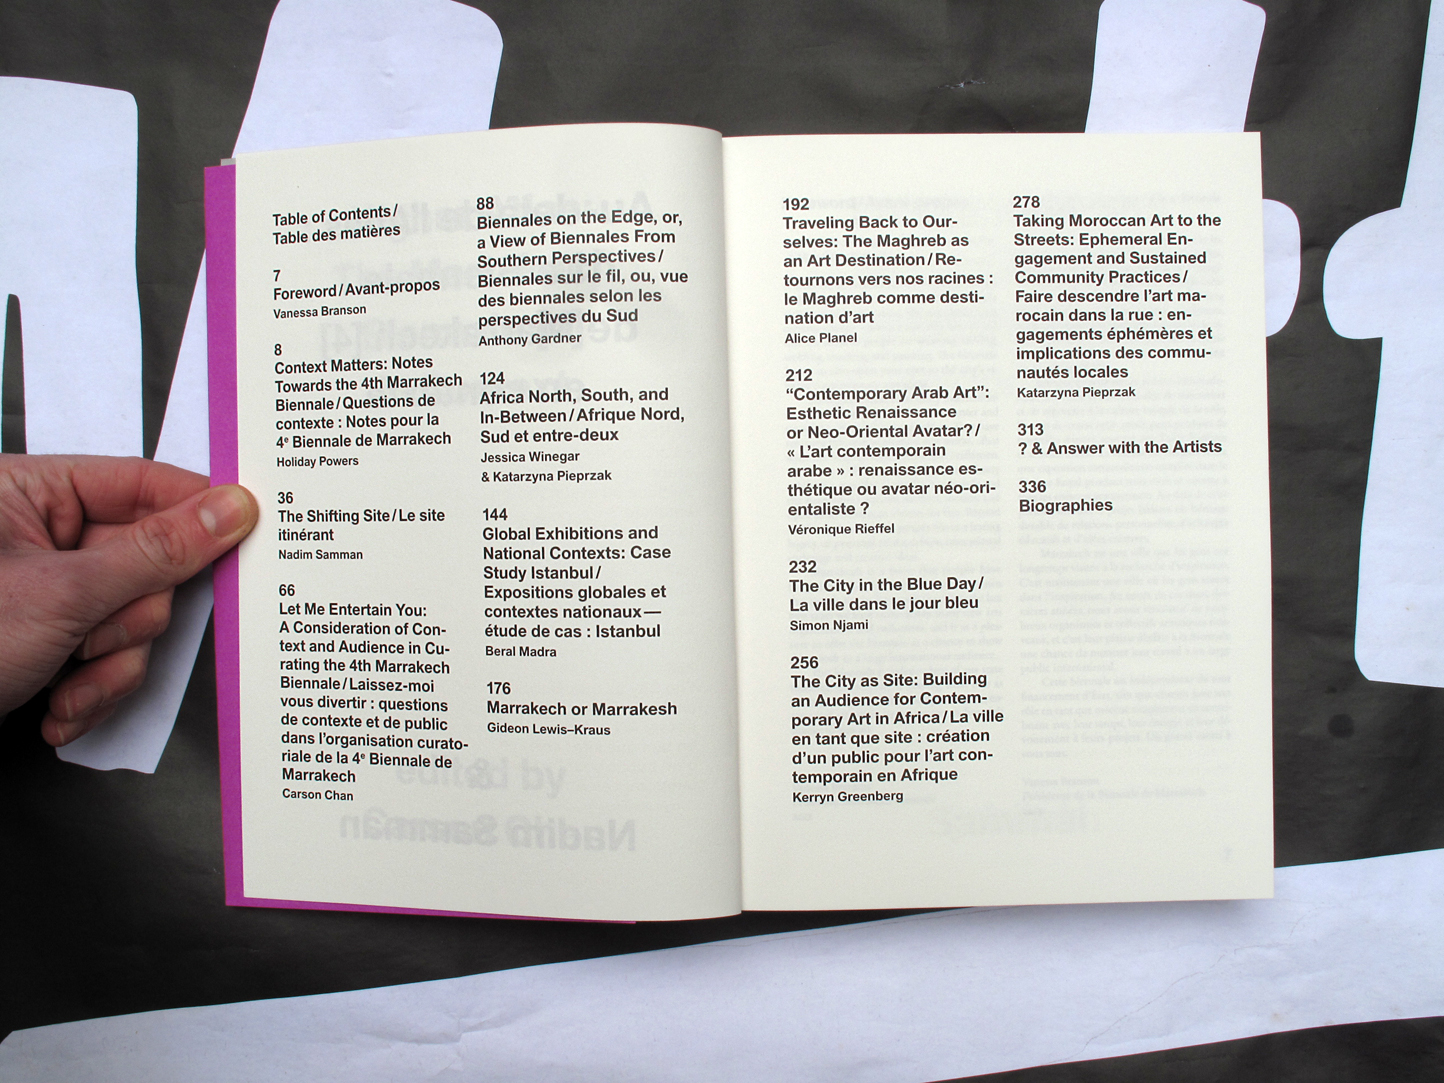 Table of Contents /
Table des matières
7
Foreword / Avant-propos
Vanessa Branson
8
Context Matters: Notes
Towards the 4th Marrakech
Biennale / Questions de
contexte : Notes pour la
4e Biennale de Marrakech
Holiday Powers
36
The Shifting Site / Le site
itinérant
Nadim Samman
66
Let Me Entertain You:
A Consideration of Con-
text and Audience in Cu-
rating the 4th Marrakech
Biennale / Laissez-moi
vous divertir : questions
de contexte et de public
dans l’organisation curato-
riale de la 4e Biennale de
Marrakech
Carson Chan
88
Biennales on the Edge, or,
a View of Biennales From
Southern Perspectives /
Biennales sur le fil, ou, vue
des biennales selon les
perspectives du Sud
Anthony Gardner
124
Africa North, South, and
In-Between / Afrique Nord,
Sud et entre-deux
Jessica Winegar
& Katarzyna Pieprzak
144
Global Exhibitions and
National Contexts: Case
Study Istanbul /
Expositions globales et
contextes nationaux —
étude de cas : Istanbul
Beral Madra
176
Marrakech or Marrakesh
Gideon Lewis–Kraus
192
Traveling Back to Our-
selves: The Maghreb as
an Art Destination / Re-
tournons vers nos racines :
le Maghreb comme desti-
nation d’art
Alice Planel
212
“Contemporary Arab Art”:
Esthetic Renaissance
or Neo-Oriental Avatar? /
« L’art contemporain
arabe » : renaissance es-
thétique ou avatar néo-ori-
entaliste ?
Véronique Rieffel
232
The City in the Blue Day /
La ville dans le jour bleu
Simon Njami
256
The City as Site: Building
an Audience for Contem-
porary Art in Africa / La ville
en tant que site : création
d’un public pour l’art con-
temporain en Afrique
Kerryn Greenberg
278
Taking Moroccan Art to the
Streets: Ephemeral En-
gagement and Sustained
Community Practices /
Faire descendre l’art ma-
rocain dans la rue : en-
gagements éphémères et
implications des commu-
nautés locales
Katarzyna Pieprzak
313
? & Answer with the Artists
336
Biographies